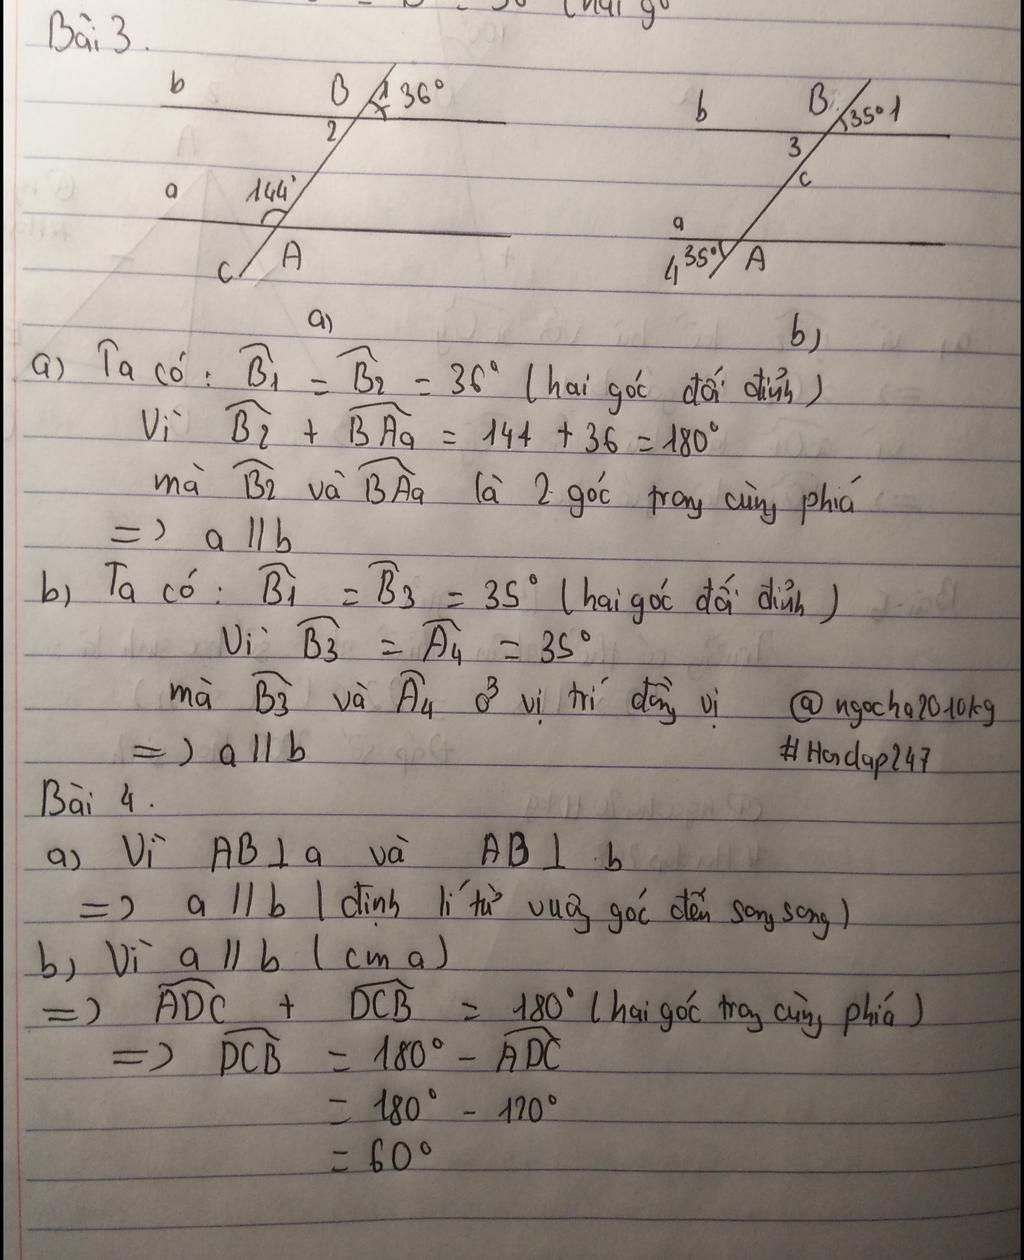 Bài 3.
b B 1 36°
2
a 144°
c A
a)
b B 35° 1
3
c
a
4 35° A
b)
a) Ta có : B̂1 = B̂2 = 36° (hai góc đối đỉnh)
Vì B̂2 + BÂa = 144 + 36 = 180°
mà B̂2 và BÂa là 2 góc trong cùng phiá
=> a // b
b) Ta có : B̂1 = B̂3 = 35° (hai góc đối đỉnh)
Vì B̂3 = Â4 = 35°
mà B̂3 và Â4 ở vị trí đồng vị @ngocha2010kg
=> a // b #Hoidap247
Bài 4.
a) Vì AB ⊥ a và AB ⊥ b
=> a // b (định lí từ vuông góc đến song song)
b) Vì a // b (cm a)
=> ADC + DCB = 180° (hai góc trong cùng phiá)
=> DCB = 180° - ADC
= 180° - 120°
= 60°